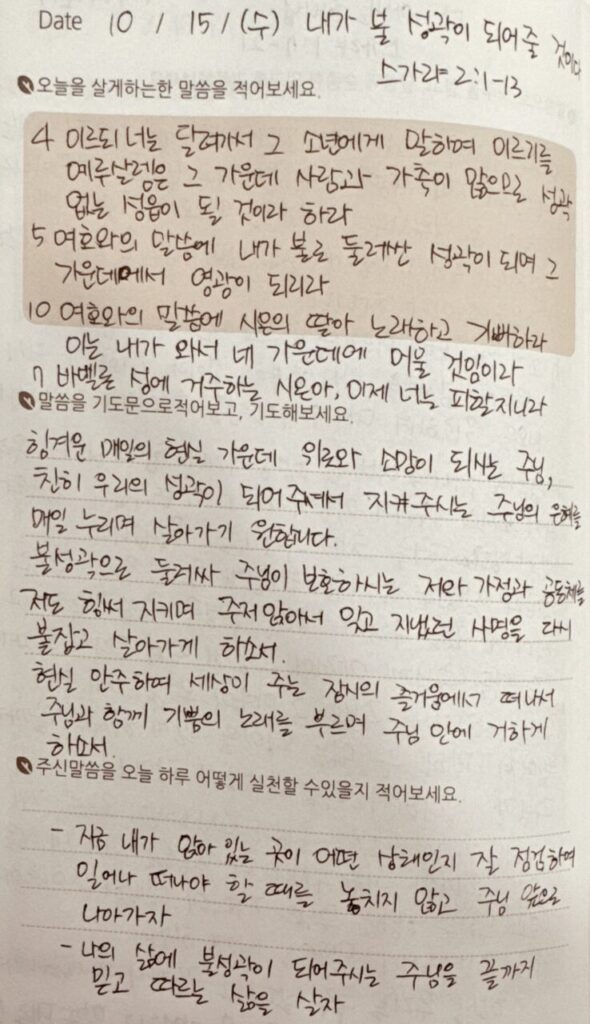 Date 10 / 15 / (수) 내가 불 성곽이 되어줄 것이다
스가랴 2:1-13
오늘을 살게하는한 말씀을 적어보세요.
4 이르되 너는 달려가서 그 소년에게 말하여 이르기를
예루살렘은 그 가운데 사람과 가축이 많으므로 성곽
없는 성읍이 될 것이라 하라
5 여호와의 말씀에 내가 불로 둘레싼 성곽이 되며 그
가운데에서 영광이 되리라
10 여호와의 말씀에 시온의 딸아 노래하고 기뻐하라
이는 내가 와서 네 가운데에 머물 것임이라
7 바벨론 성에 거주하는 시온아, 이제 너는 피할지니라
말씀을 기도문으로적어보고, 기도해보세요.
힘겨운 매일의 현실 가운데 위로와 소망이 되시는 주님,
친히 우리의 성곽이 되어주셔서 지켜주시는 주님의 은혜를
매일 누리며 살아가기 원합니다.
불성곽으로 둘러싸 주님이 보호하시는 저와 가정과 공동체를
저도 힘써 지키며 주저앉아서 잊고 지냈던 사명을 다시
붙잡고 살아가게 하소서.
현실 안주하며 세상이 주는 잠시의 즐거움에서 떠나서
주님과 함께 기쁨의 노래를 부르며 주님 안에 거하게
하소서.
주신말씀을 오늘 하루 어떻게 실천할 수있을지 적어보세요.
- 지금 내가 앉아 있는 곳이 어떤 상태인지 잘 점검하여
일어나 떠나야 할 때를 놓치지 않고 주님 앞으로
나아가자
- 나의 삶에 불성곽이 되어주시는 주님을 끝까지
믿고 따르는 삶을 살자